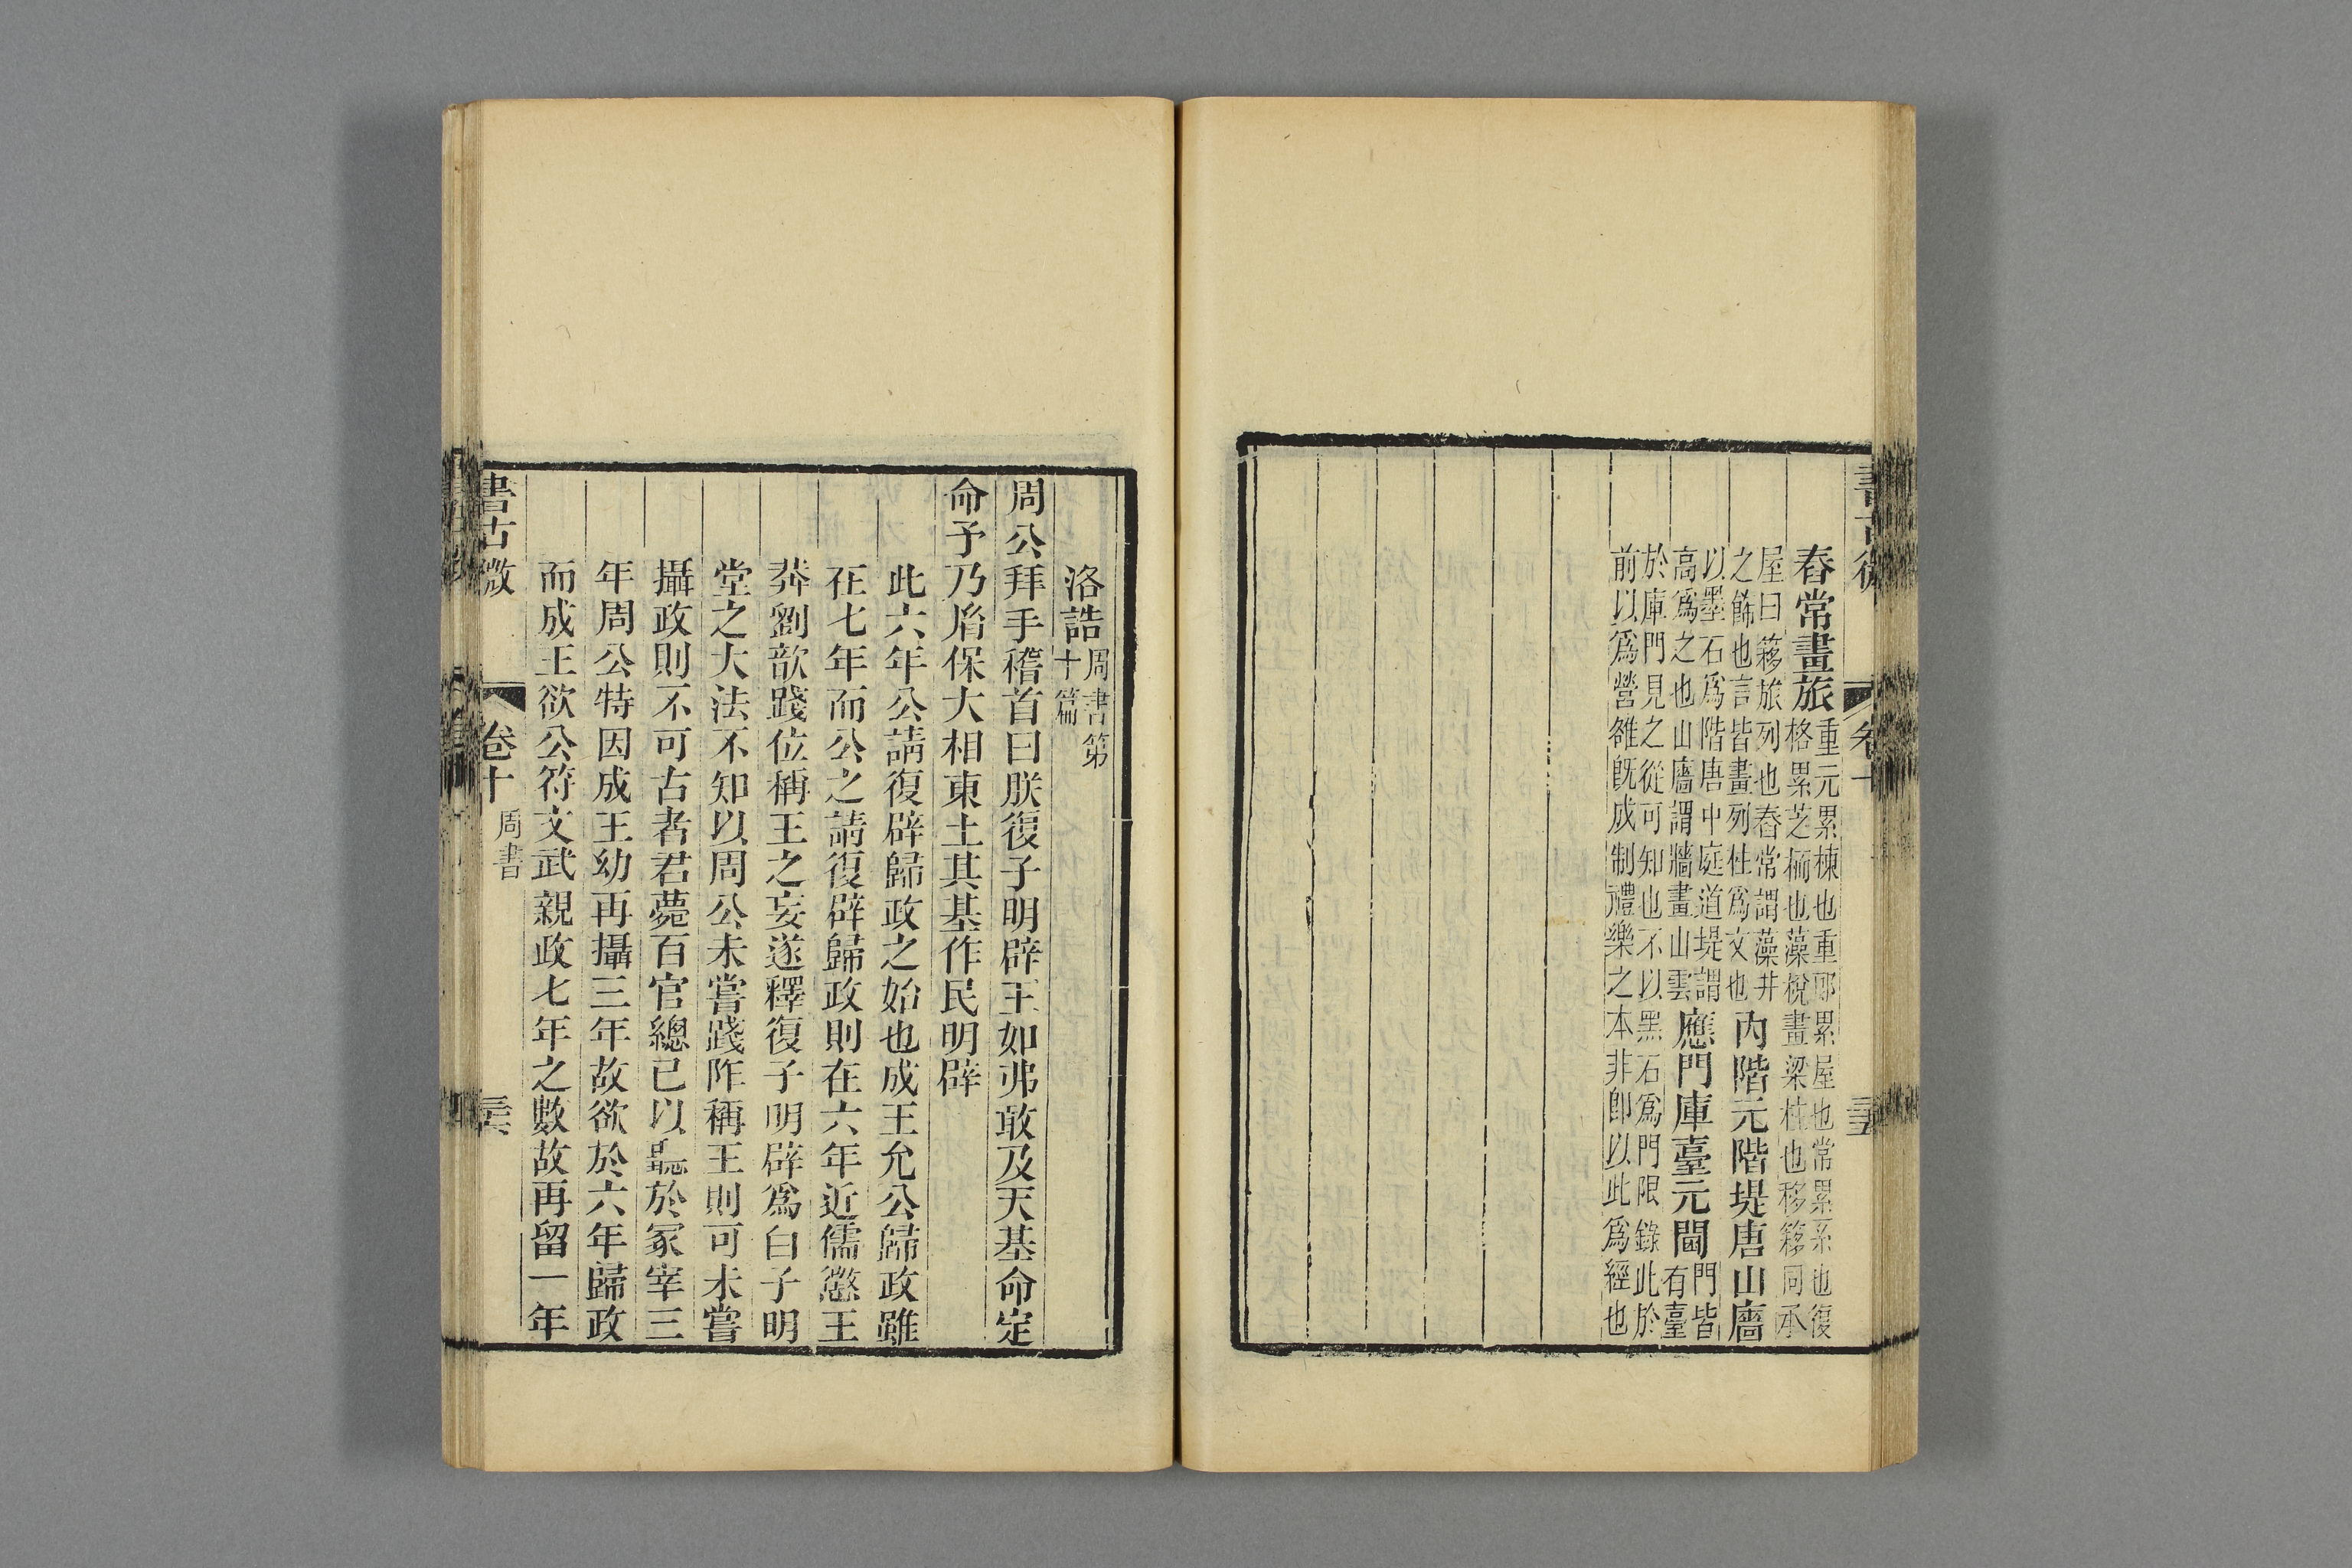 書古微 卷十 三五
舂常畫旅重元累棟也重郎累屋也常累系也復
格累芝栭也藻梲畫梁柱也移簃同承
屋曰簃旅列也舂常謂藻井
之飾也言皆畫列柱爲文也內階元階堤唐山廧
以墨石爲階唐中庭道堤謂
高爲之也山廧謂牆畫山雲應門庫臺元閫門皆
有臺
於庫門見之從可知也不以黑石爲門限錄此於
前以爲營雒旣成制禮樂之本非卽以此爲經也
洛誥周書第
十篇
周公拜手稽首曰朕復子明辟王如弗敢及天基命定
命予乃胤保大相東土其基作民明辟
此六年公請復辟歸政之始也成王允公歸政雖
在七年而公之請復辟歸政則在六年近儒懲王
莽劉歆踐位稱王之妄遂釋復子明辟爲白子明
堂之大法不知以周公未嘗踐阼稱王則可未嘗
攝政則不可古者君薨百官總已以聽於冢宰三
年周公特因成王幼再攝三年故欲於六年歸政
而成王欲公符文武親政七年之數故再留一年
書古微 卷十 周書 三六